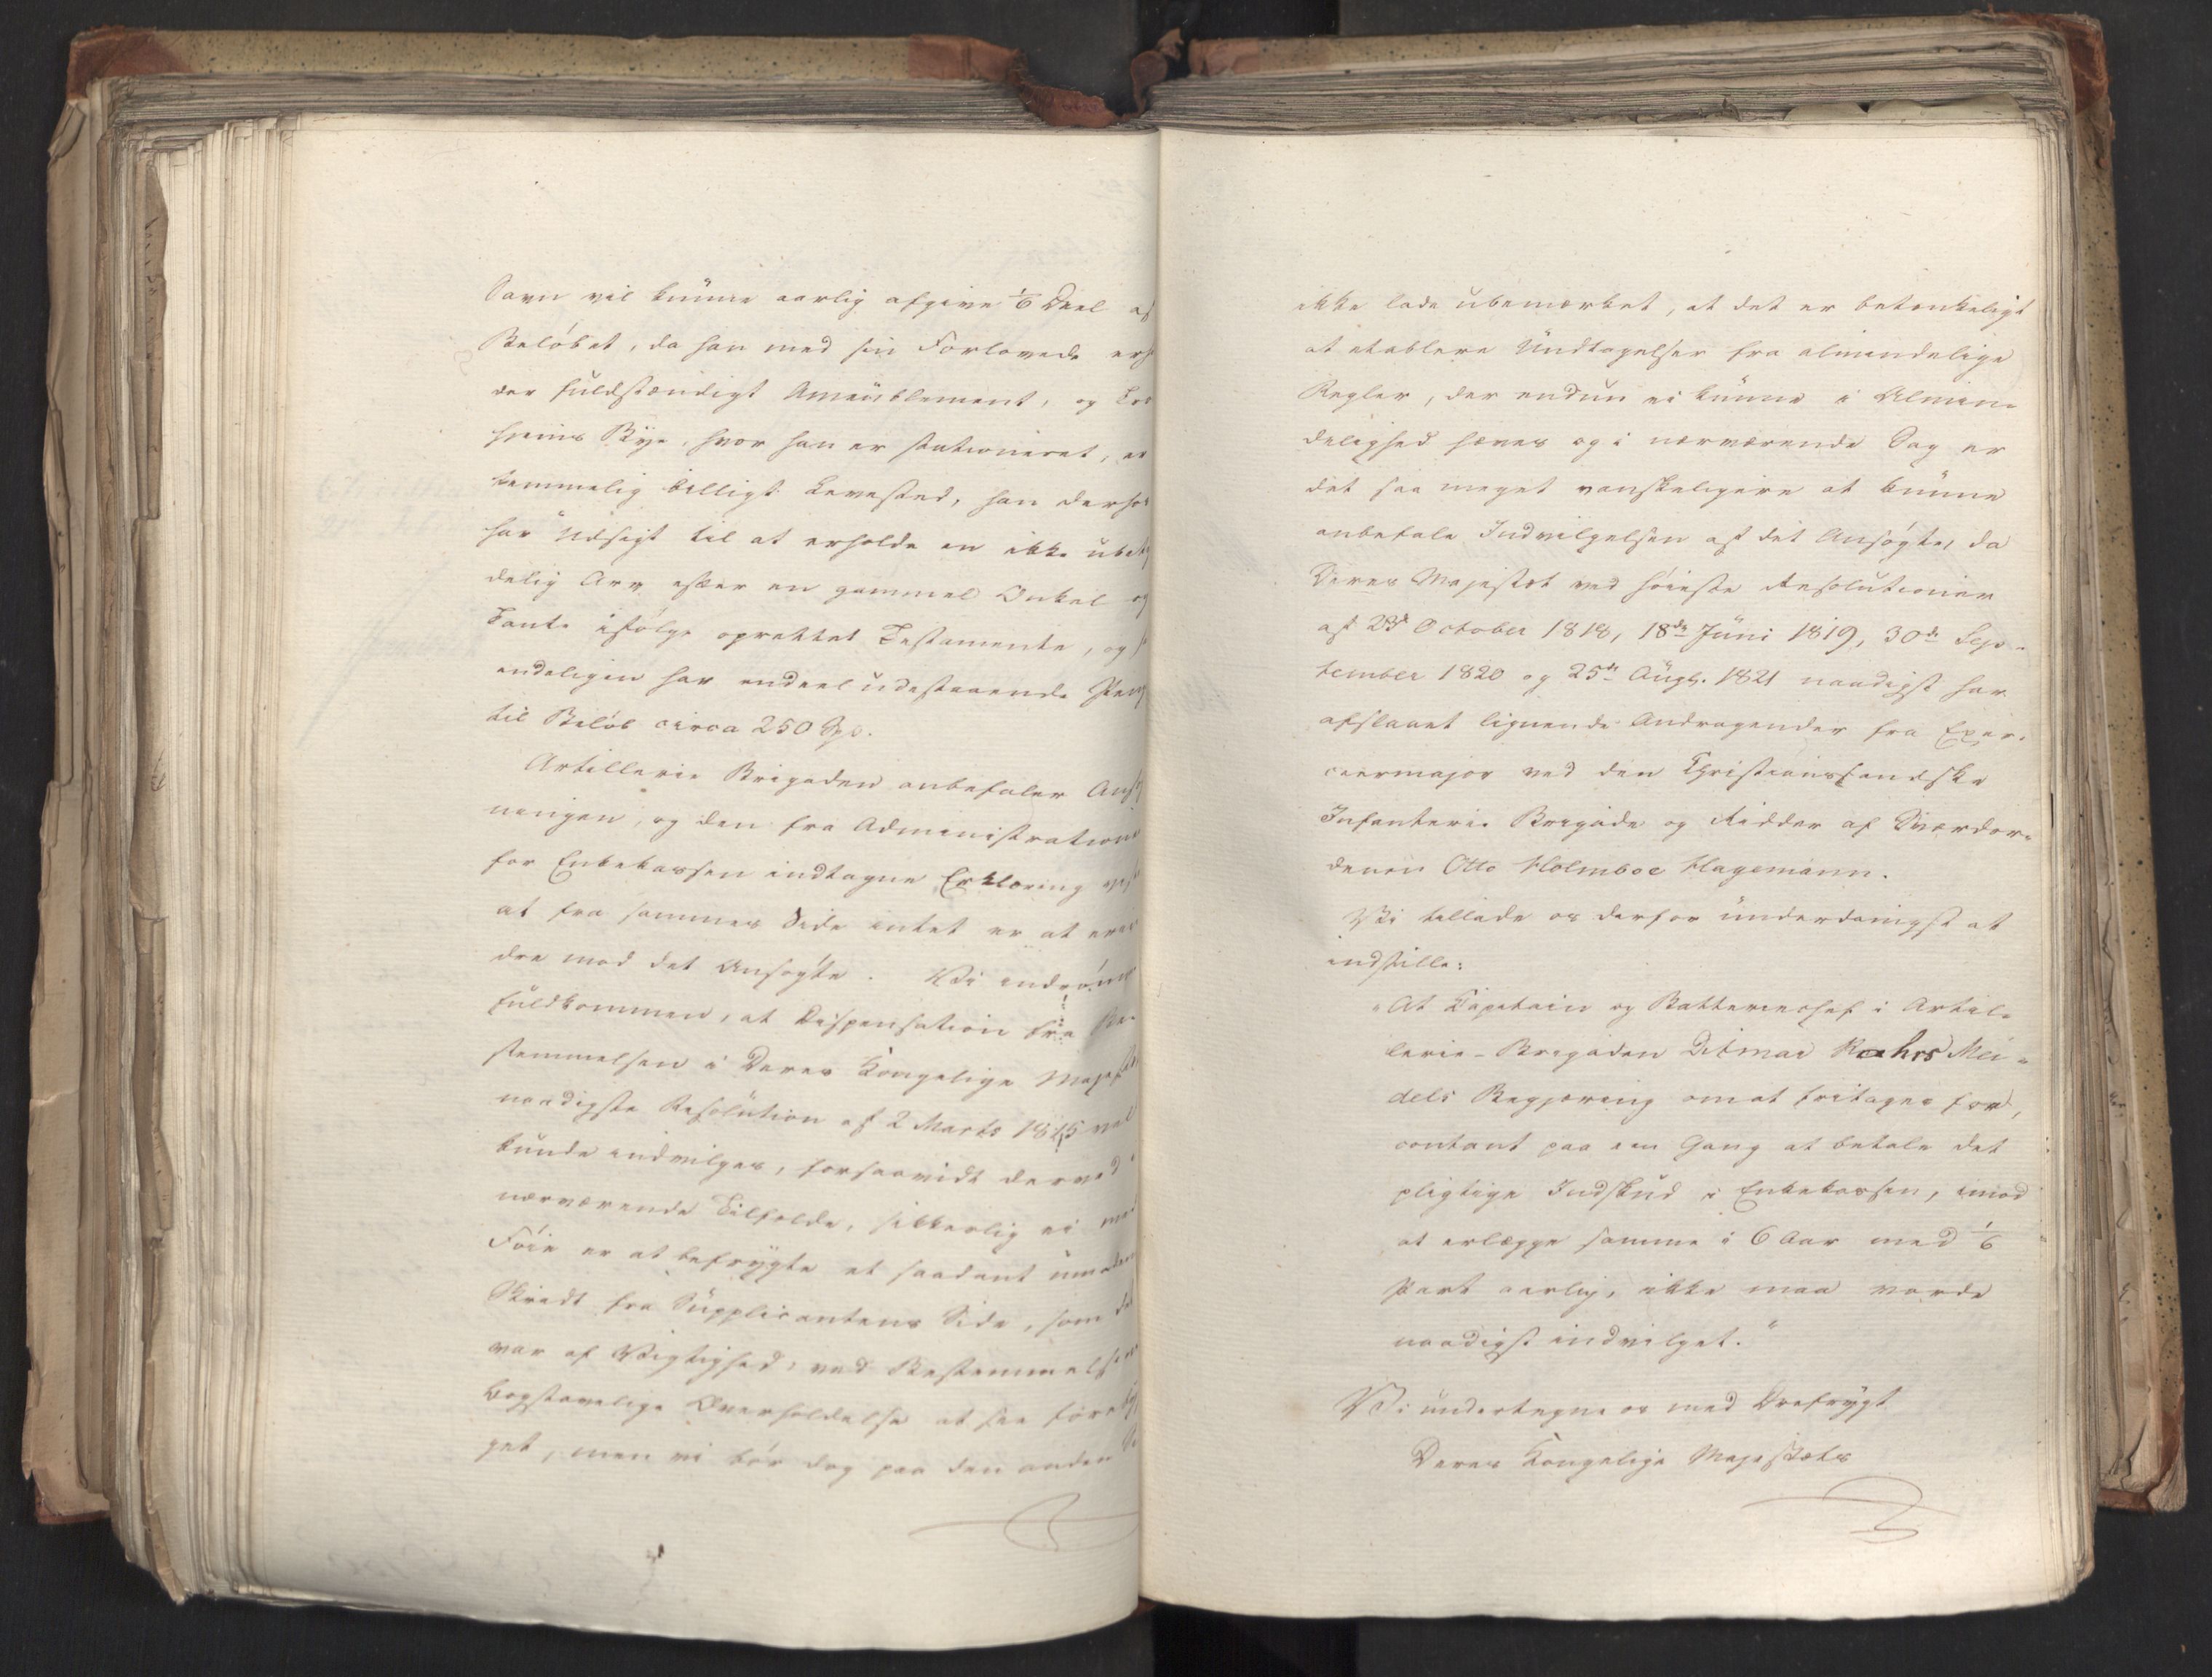 Savn vil kunne aarlig afgive 1/6 Deel af
Beløbet, da han med sin Forlovede er
der fuldstændigt Ameublement, og
hjems Bye, hvor han er stationeret, er
temmelig billigt Levested, han derhos
har Udsigt til at erholde en ikke ubety
delig Arv efter en gammel Onkel og
Tante ifølge oprettet Testamente, og
endeligen har endeel udestaaende Peng
til Beløb circa 250 Spd.
Artillerie Brigaden anbefaler Ansøg
ningen, og den fra Administrationen
for Enkekassen indtagne Erklæring
at fra sammes Side intet er at erin
dre mod det Ansøgte. Vi indrømme
fuldkommen, at Dispensation fra Be-
stemmelsen i Deres Kongelige Majestæts
naadigste Resolution af 2 Marts 1815 vel
kunde indvilges, forsaavidt derved i
nærværende Tilfælde, sikkerlig ei med
Føie er at befrygte et saadant umodent
Skridt fra Supplicantens Side, som det
var af Vigtighed, ved Bestemmelsens
bogstavelige Overholdelse at see forebyg
get, men vi bør dog paa den anden Si
ikke lade ubemærket, at det er betænkeligt
at etablere Undtagelser fra almindelige
Regler, der endnu ei kunne i Almin-
delighed hæves og i nærværende Sag er
det saa meget vanskeligere at kunne
anbefale Indvilgelsen af det Ansøgte, da
Deres Majestæt ved høieste Resolutioner
af 23d October 1818, 18de Juni 1819, 30de Sep-
tember 1820 og 25de Augs. 1821 naadigst har
afslaaet lignende Andragender fra Exer-
ceermajor ved den Christianssandske
Infanterie Brigade og Ridder af Sværdor-
denen Otto Holmboe Hagemann.
Vi tillade os derfor underdanigst at
indstille:
"At Capitain og Batteriechef i Artil-
lerie-Brigaden Ditmar Roehrs Mei-
dels Begjæring om at fritages for,
contant paa een Gang at betale det
pligtige Indskud i Enkekassen, imod
at erlægge samme i 6 Aar med 1/6
Part aarlig, ikke maa vorde
naadigst indvilget."
Vi undertegne os med Ærefrygt
Deres Kongelige Majestæts